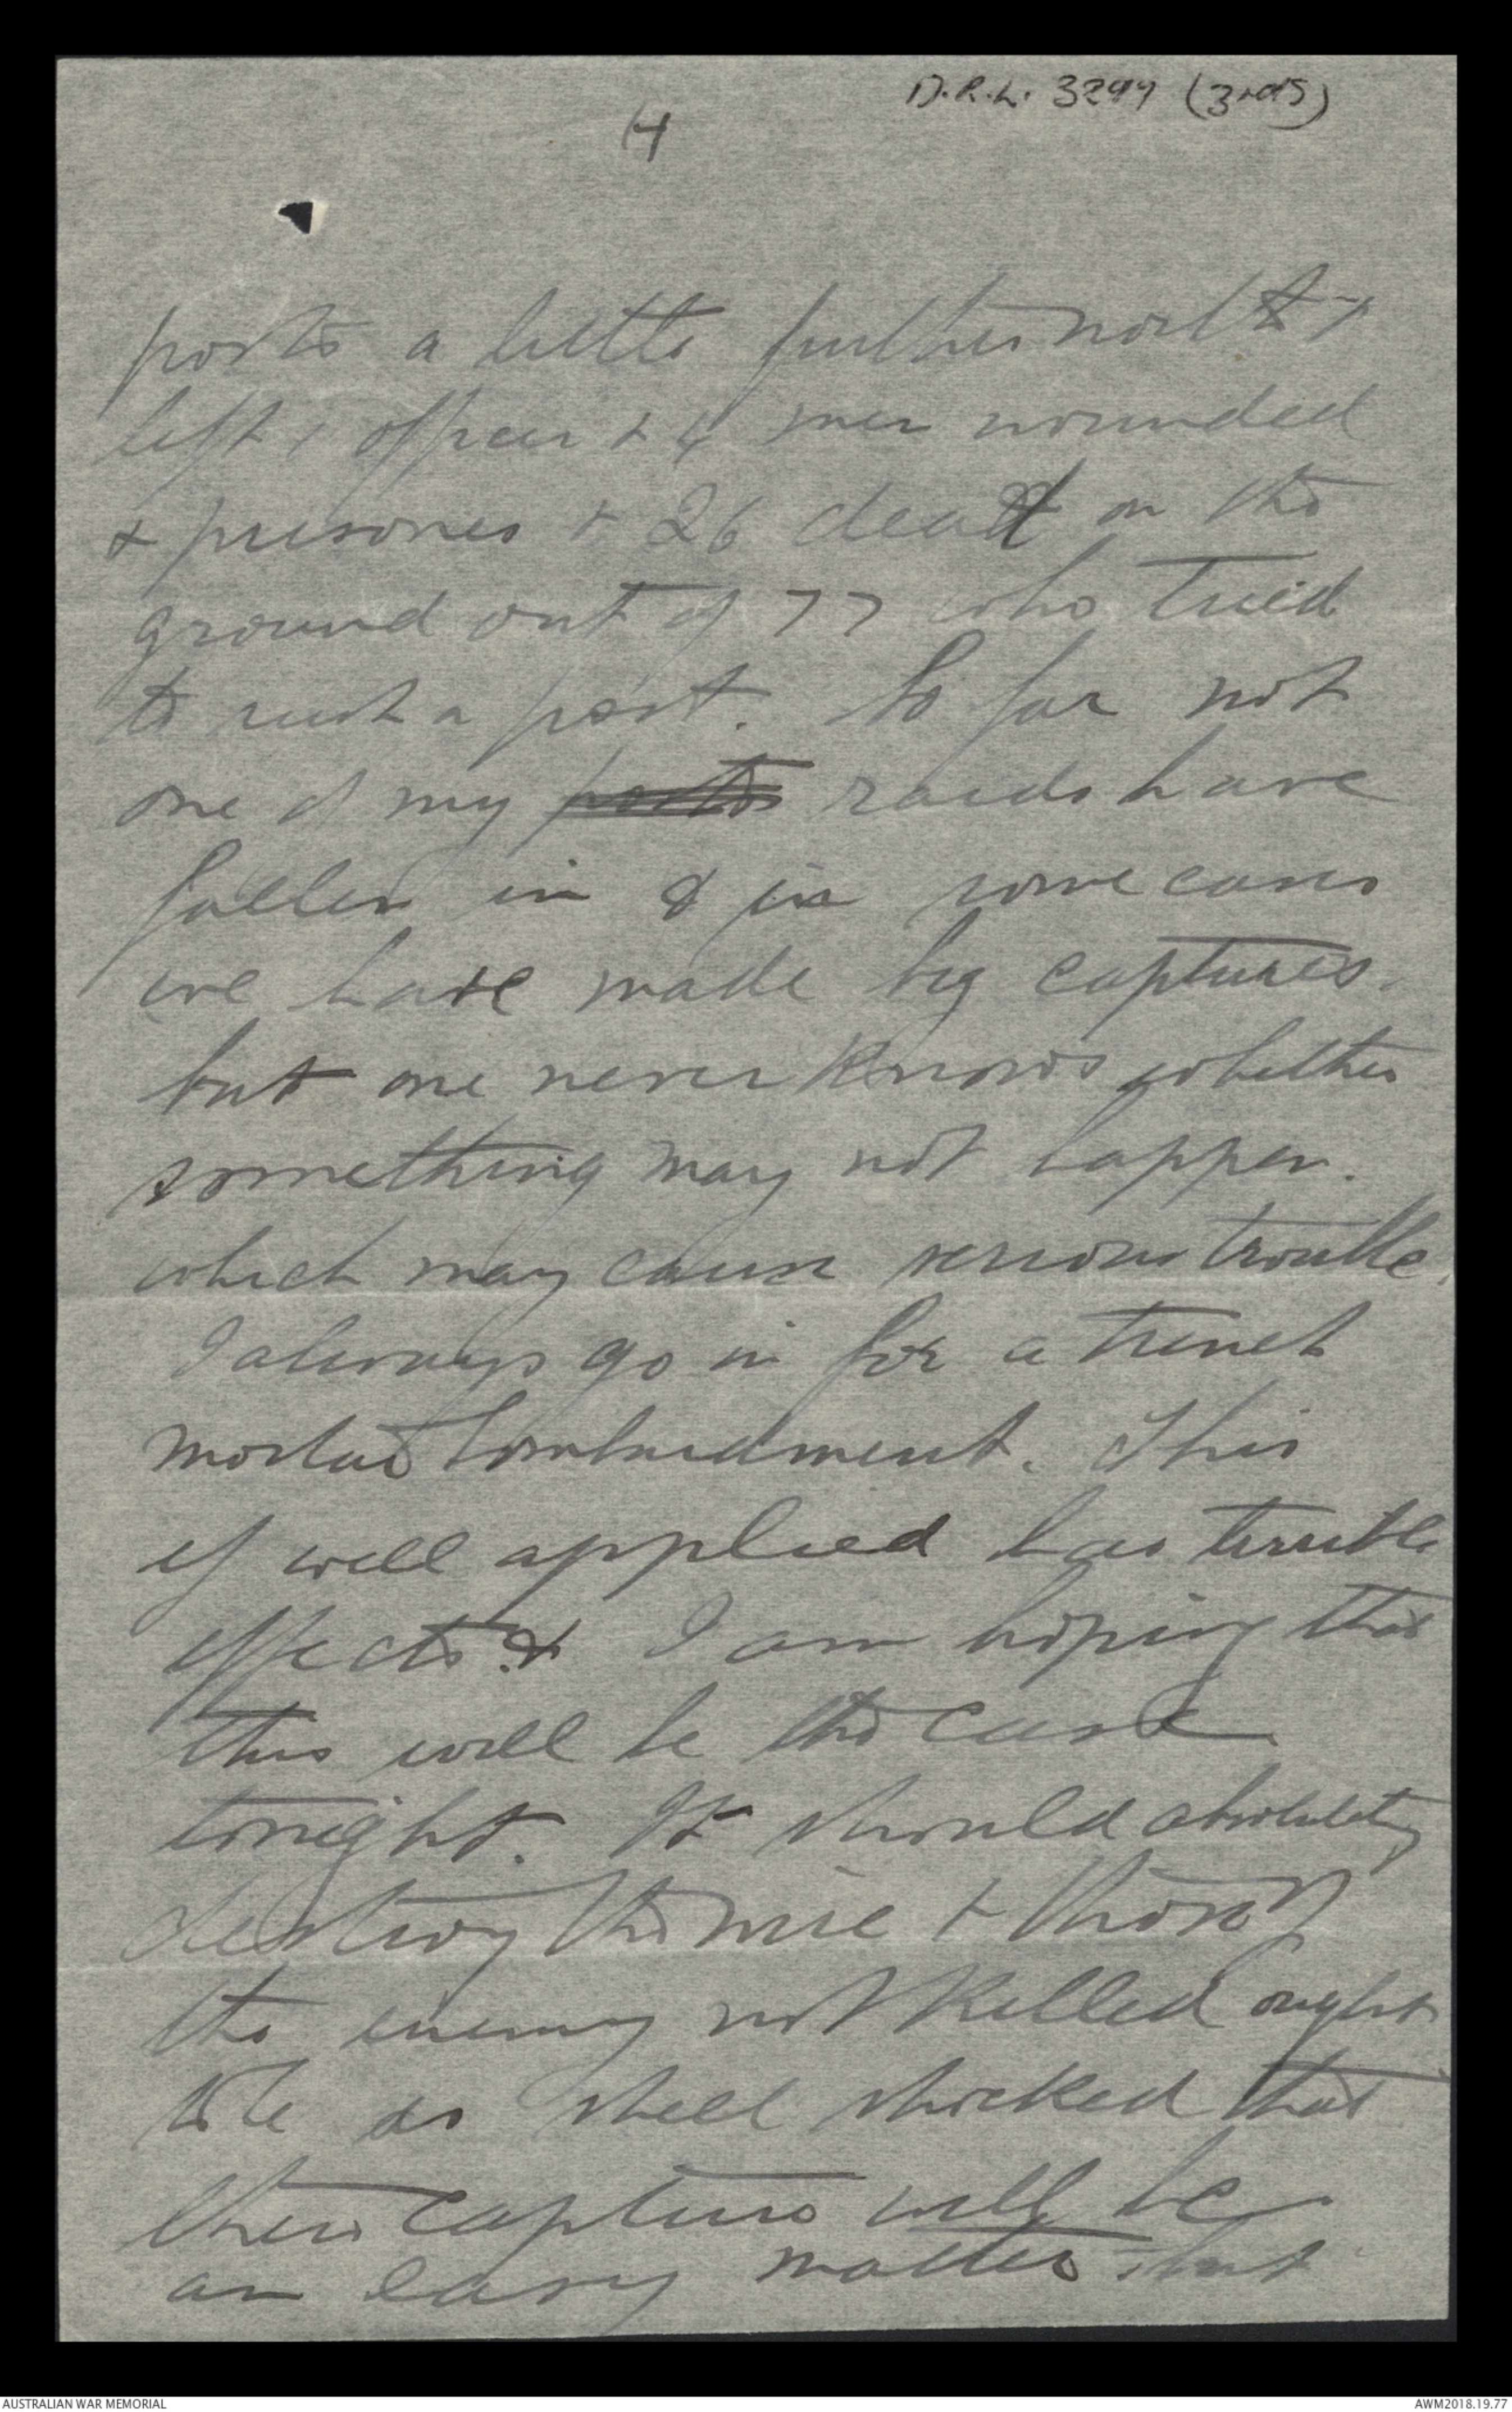 D.R.L. 3299 (3rdS)
(4
posts a little further north &
left 1 officer & 4 men wounded
& prisoners & 26 dead on the
ground out of 77 who tried
to rush a post. So far not
one of my posts raids have
fallen in & in some cases
we have made big captures.
but one never knows whether
something may not happen.
which may cause serious trouble.
I always go in for a trench
mortar bombardment. This
if well applied has terrible
effects & I am hoping that
this will be the case
tonight. It should absolutely
destroy the wire & those of
the enemy not killed ought
to be so shell shocked that
their capture will be
an easy matter. but
AUSTRALIAN WAR MEMORIAL
AWM2018.19.77